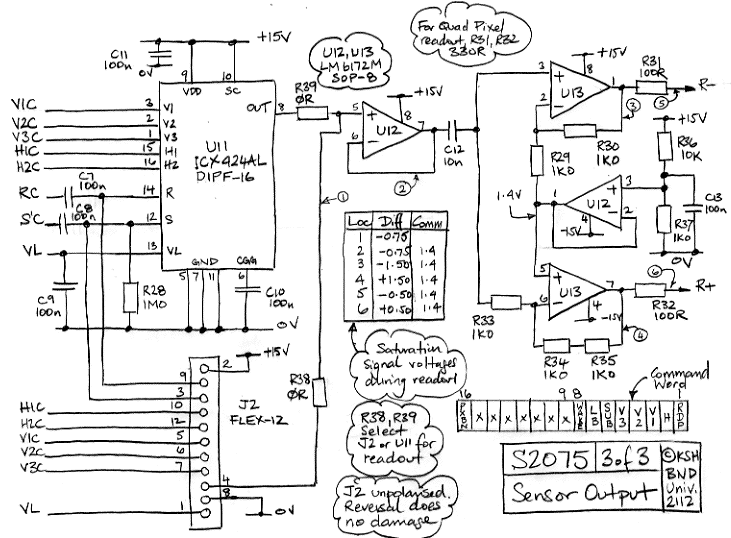 C11
100n
+15V
0V
9
10
VDD
SC
V1C
3
V1
V2C
2
V2
V3C
1
V3
H1C
15
H1
H2C
16
H2
OUT
8
U11
ICX424AL
DIPF-16
RC
C7
100n
14
R
S'C
C8
100n
12
S
VL
13
VL
GND
CGG
5
7
11
6
C9
100n
R28
1M0
C10
100n
0V
R39
0R
U12, U13
LM6172M
SOP-8
For Quad Pixel
readout, R31, R32
330R
5
6
7
8
+
-
U12
+15V
C12
10n
1
2
3
2
1
8
+
-
U13
+15V
R31
100R
R-
3
5
R30
1K0
R29
1K0
+15V
R36
10K
1.4V
1
3
2
4
+
-
-15V
U12
R37
1K0
C13
100n
0V
5
6
7
4
+
-
U13
-15V
R32
100R
R+
6
4
R33
1K0
R34
1K0
R35
1K0
Loc Diff Comm
1 -0.75
2 -0.75 1.4
3 -1.50 1.4
4 +1.50 1.4
5 -0.50 1.4
6 +0.50 1.4
Saturation
Signal voltages
during readout
R38
0R
+15V
2
9
3
H1C
10
H2C
12
V1C
5
V2C
6
V3C
7
4
8
VL
1
0V
J2
FLEX-12
R38, R39
Select
J2 or U11 for
readout
J2 unpolarised.
Reversal does
no damage
Command
Word
16
9 8
1
X X X X X X
LB
SUB
V3
V2
V1
H
RDP
S2075 3 of 3
Sensor Output
©KSH
BND
Univ.
2112